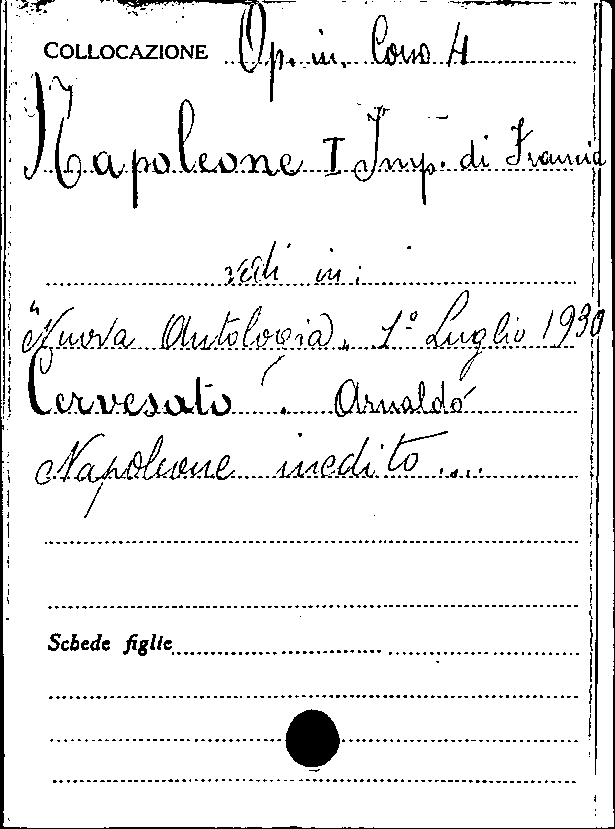 COLLOCAZIONE Op. in. Corso 4
Napoleone I Imp. di Francia
vedi in:
"Nuova Antologia" 1° Luglio 1930
Cervesato . Arnaldo
Napoleone inedito ....
Schede figlie